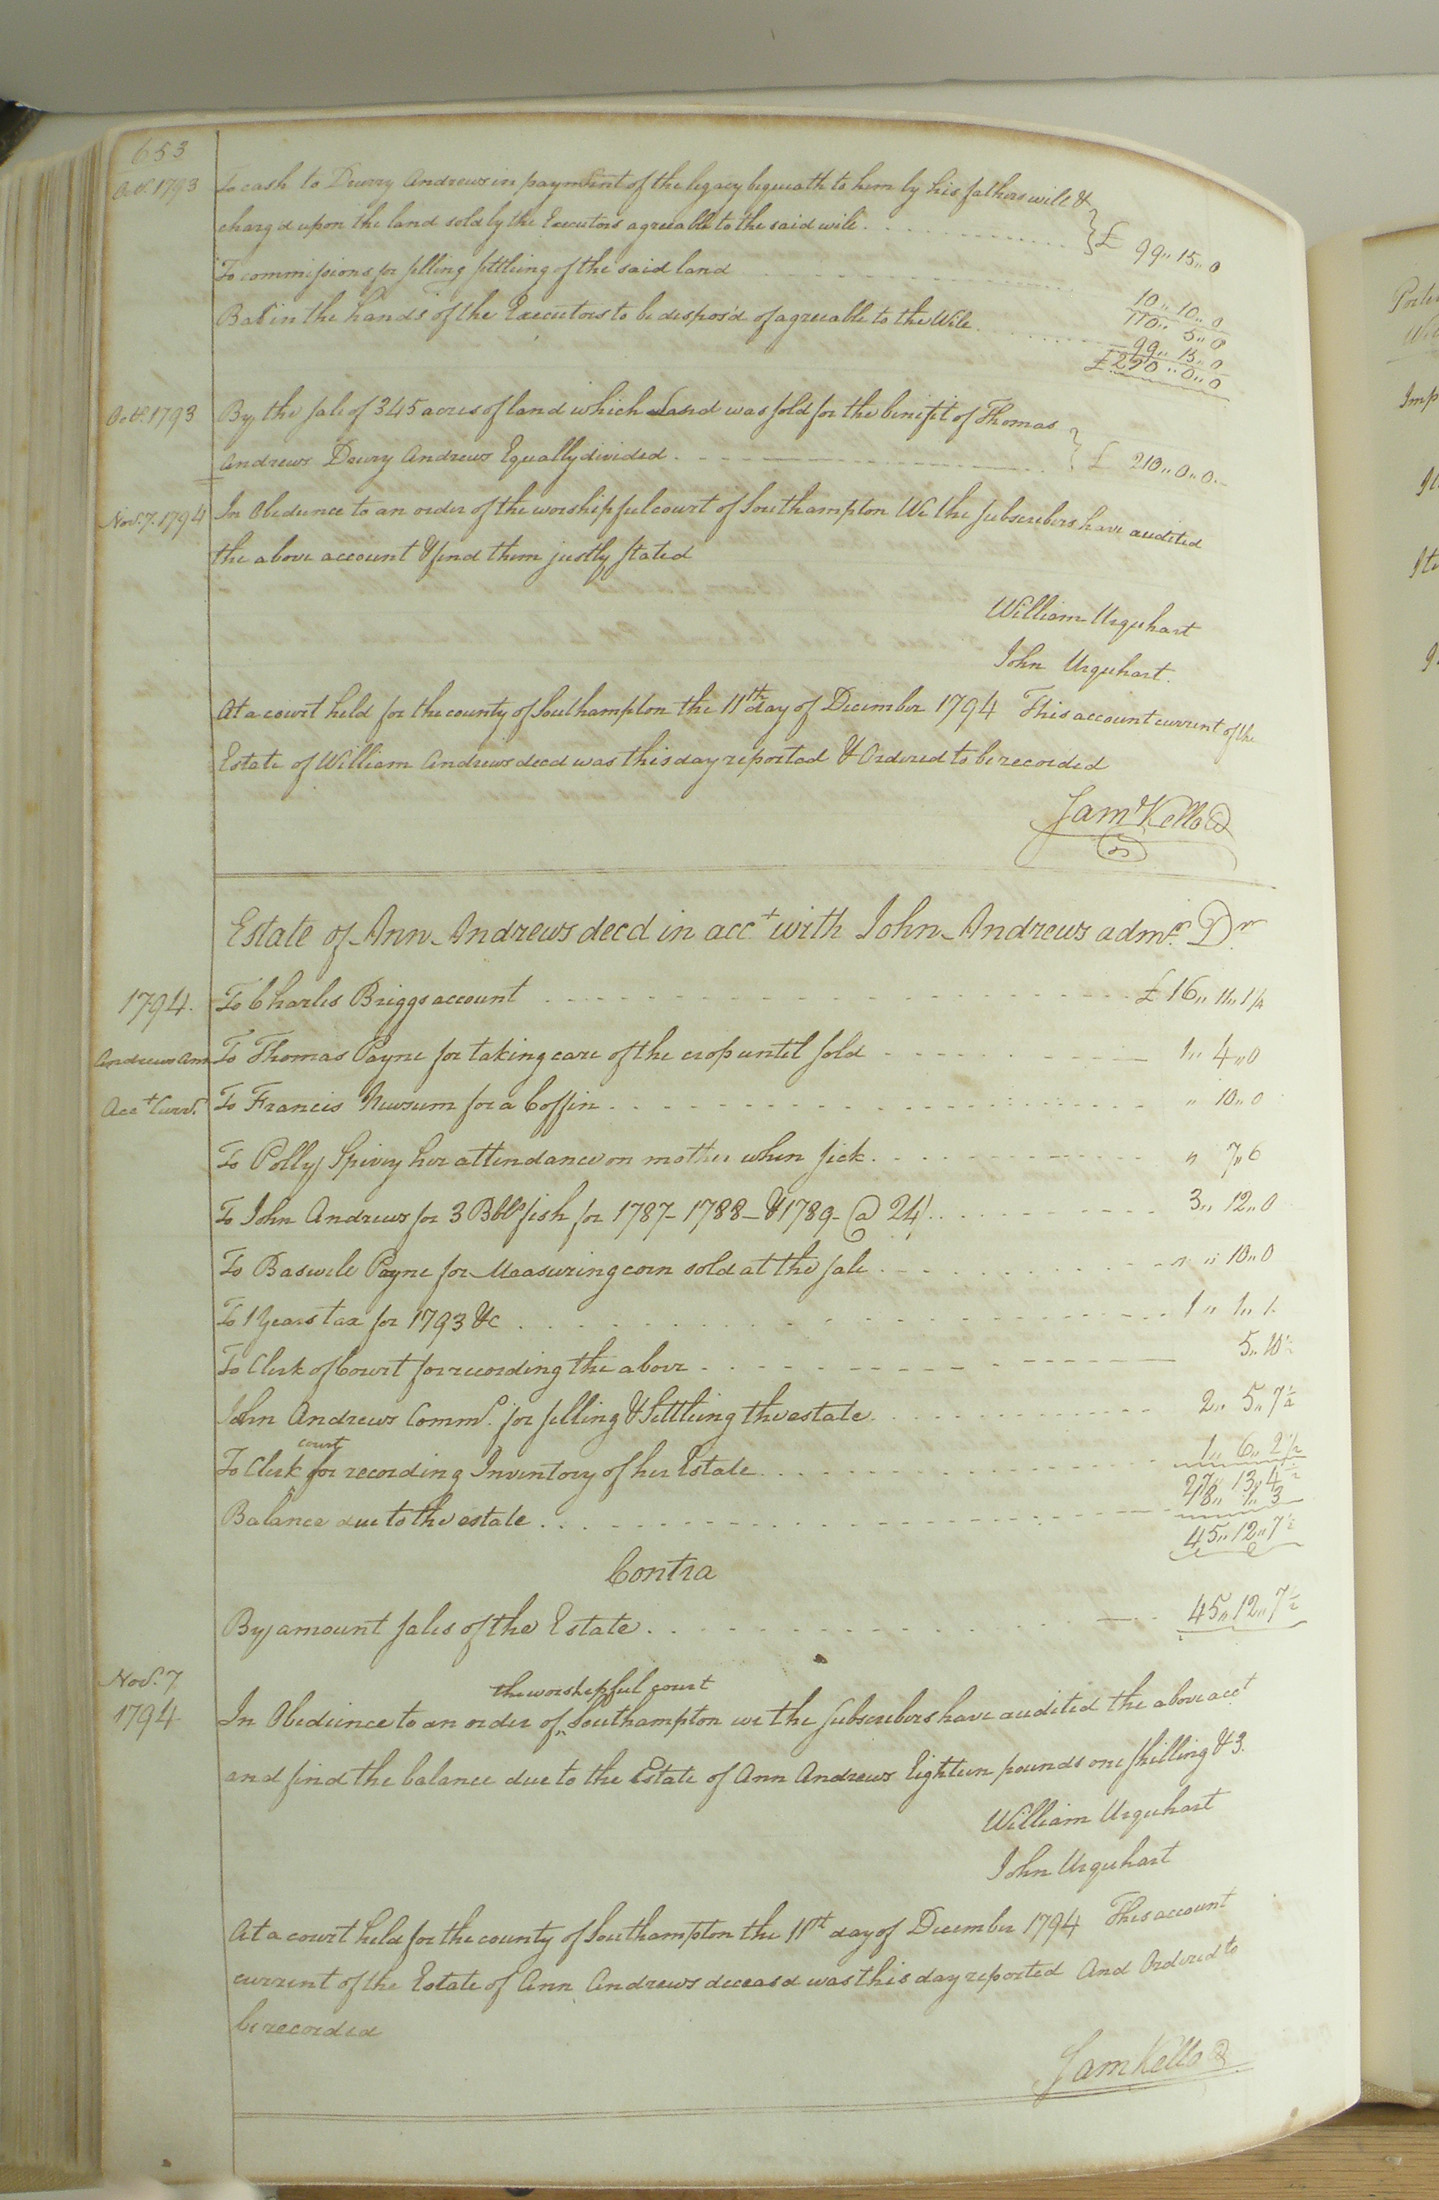 653
Oct. 1793 To cash to Drury Andrews in payment of the legacy bequeath to him by his fathers will &
charg'd upon the land sold by the Executors agreeable to the said will . . . } £ 99,, 15,, 0
To commissions for selling settleing of the said land 10,, 10,, 0
110,, 5,, 0
Bal in the hands of the Executors to be dispos'd of agreeable to the Wile . . . 99,, 15,, 0
£ 210,, 0,, 0
Oct. 1793 By the sale of 345 acres of land which Land was sold for the benifit of Thomas
Andrews Drury Andrews Equally divided . } £ 210,, 0,, 0.
Nov. 7. 1794 In Obedience to an order of the worshipful court of Southampton We the subscribers have audited
the above account & find them justly stated
William Urquhart
John Urquhart.
At a court held for the county of Southampton the 11th day of December 1794 This account current of the
Estate of William Andrews decd was this day reported & Ordered to be recorded
Saml Kello
Estate of Ann Andrews decd in acct with John Andrews admr. Dr.
1794. To Charles Briggs account £ 16,, 11,, 1 1/4
Andrews Ann To Thomas Payne for taking care of the crop until sold 1,, 4,, 0
Acct Currt. To Francis Newsum for a Coffin . . . ,, 10,, 0
To Polly Spivey her attendance on mother when sick . . . ,, 7,, 6
To John Andrews for 3 Bbls fish for 1787 - 1788 - & 1789 - @ 24/ . . . 3,, 12,, 0
To Baswele Payne for Measuring corn sold at the sale . . . ,, ,, 10,, 0
To 1 Years tax for 1793 &c . . . 1,, 1,, 1.
To Clerk of Court for recording the above . . . 5,, 10 1/2
John Andrews Comms. for selling & Settleing the estate . . . 2,, 5,, 7 1/2
court
To Clerk for recording Inventory of her Estate . . . 1,, 6,, 2 1/2
27,, 13,, 4 1/2
18,, 1,, 3
Balance due to the estate . . . 45,, 12,, 7 1/2
Contra
By amount sales of the Estate . . . 45,, 12,, 7 1/2
Nov. 7
the worshipful court
1794 In Obedience to an order of Southampton we the Subscribers have audited the above acct
and find the balance due to the Estate of Ann Andrews Eighteen pounds one shilling & 3.
William Urquhart
John Urquhart
At a court held for the county of Southampton the 11th day of December 1794 This account
current of the Estate of Ann Andrews deceasd was this day reported And Ordered to
be recorded
Sam Kello